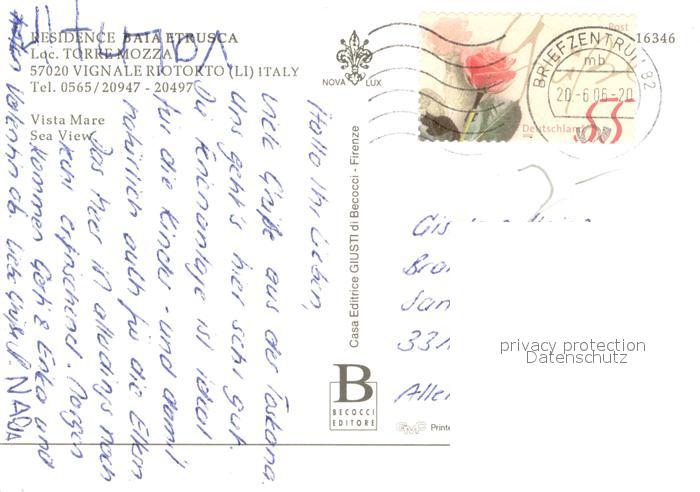 RESIDENCE BAIA ETRUSCA
Loc. TORRE MOZZA
57020 VIGNALE RIOTORTO (LI) ITALY
Tel. 0565/20947 - 20497
Vista Mare
Sea View
NOVA LUX
Post
16346
BRIEFZENTRUM 82
mb
20.-6.06-20
Deutschland
55
Hallo Ihr Lieben,
viele Grüße aus der Toskana.
Uns geht's hier sehr gut.
Die Ferienanlage ist ideal
für die Kinder - und damit
natürlich auch für die Eltern
Das Meer ist allerdings noch
sehr erfrischend. Morgen
kommen Gerti & Enko und
holen Valentin ab. Liebe Grüße
NADJA
Casa Editrice GIUSTI di Becocci - Firenze
B
BECOCCI
EDITORE
Gis
Bra
San
331
Aller
Printe
privacy protection
Datenschutz